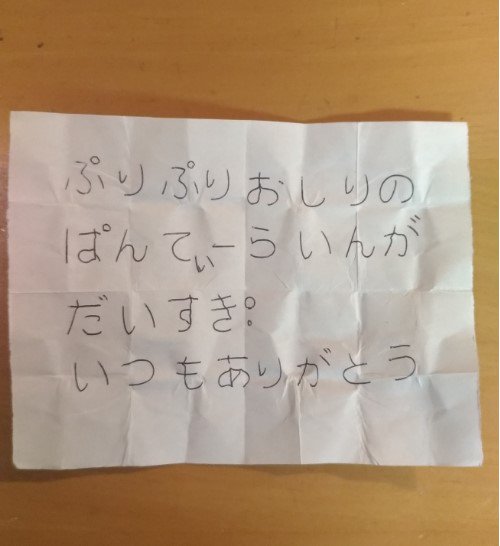 ぷりぷりおしりの
ぱんてぃーらいんが
だいすき。
いつもありがとう